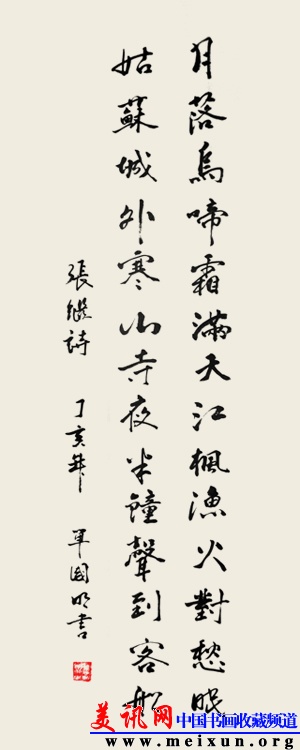 月落烏啼霜滿天江楓漁火對愁眠
姑蘇城外寒山寺夜半鐘聲到客船
張繼詩 丁亥年 單國明書
美讯网 中国书画收藏频道
www.meixun.org